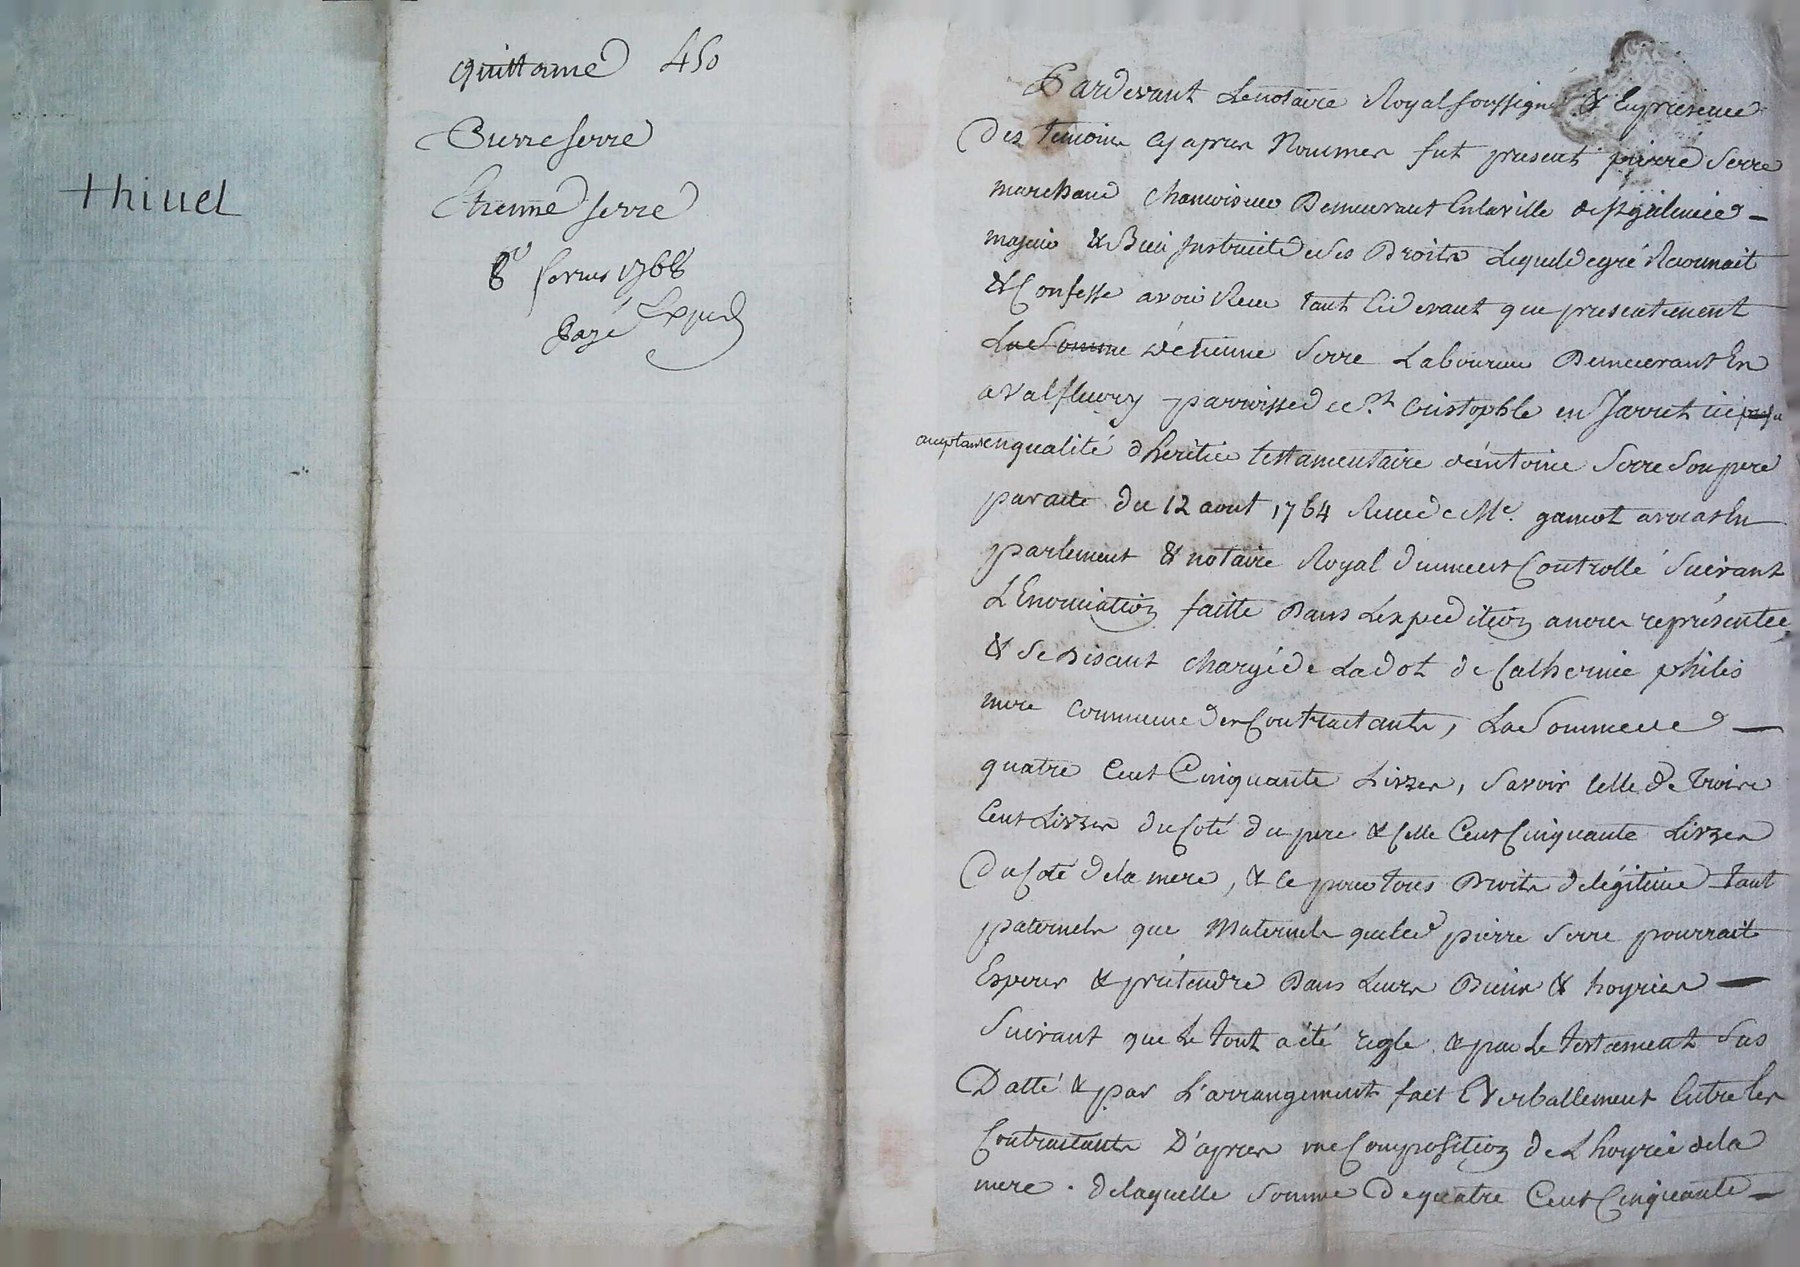 thivel
quittance 450
Pierre serre
Etienne serre
8e fevrier 1768
Payé Exped
Pardevant Lenotaire Royal soussigné & Enpresence
Des temoins cy apres Nommes fut present pierre Serre
marchand chamoiseur Demeurant Enlaville de st galmier
majeur & Bien Instruit deses Droits Lequel degré Reconnoit
& Confesse avoir Receu tant Cidevant que presentement
La Somme d'étienne Serre Laboureur Demeurant En
avalfleury parroisse de st. Cristophle en Jarret ici
acceptant enqualité d'heritier testamentaire d'antoine Serre Son pere
par acte du 12 aout 1764 Receu de Me. gamot avocat En
parlement & notaire Royal duement Controllé Suivant
L'Enonciation faitte Dans L'expedition anous représentée
& Se Disant chargé de La dot de Catherine philis
mere commune des Contractants, La Somme de
quatre Cent Cinquante Livres, Savoir celle de trois
Cent Livres du Coté du pere & Celle Cent Cinquante Livres
Du Coté dela mere, & ce pour tous Droits de légitime tant
paternels que Maternels que led pierre Serre pourrait
Esperer & prétendre Dans Leurs Biens & hoyries
Suivant que Le tout a été reglé & par Le testament Sus
Datté & par L'arrangement fait Verballement Entre les
Contractants D'apres une Composition de L'hoyrie dela
mere. de laquelle Somme De quatre Cent Cinquante